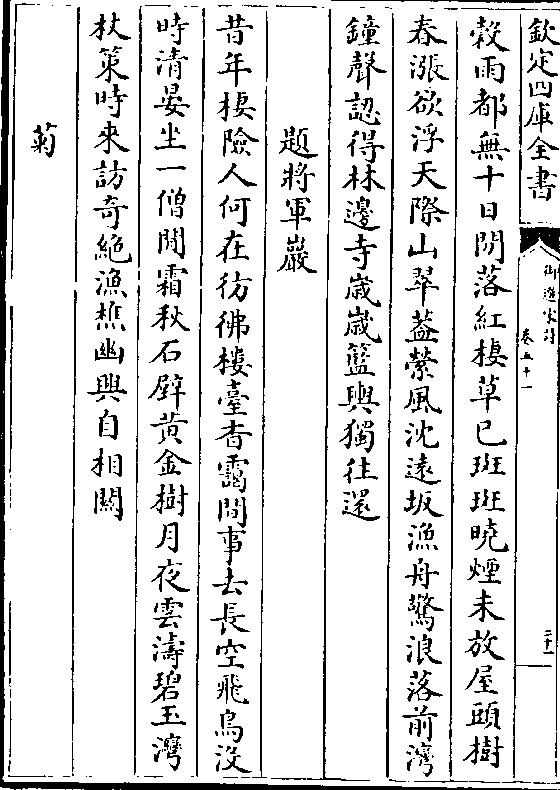 欽定四庫全書
御選宋詩
卷五十一
三十一
穀雨都無十日閒落紅棲草已斑斑曉煙未放屋頭樹
春漲欲浮天際山翠蓋縈風沈遠坂漁舟驚浪落前灣
鐘聲認得林邊寺嵗嵗籃輿獨往還
題將軍巖
昔年棲險人何在彷彿樓臺杳靄間事去長空飛鳥没
時清晏坐一僧閒霜秋石壁黄金樹月夜雲濤碧玉灣
杖䇿時來訪奇絶漁樵幽興自相關
菊